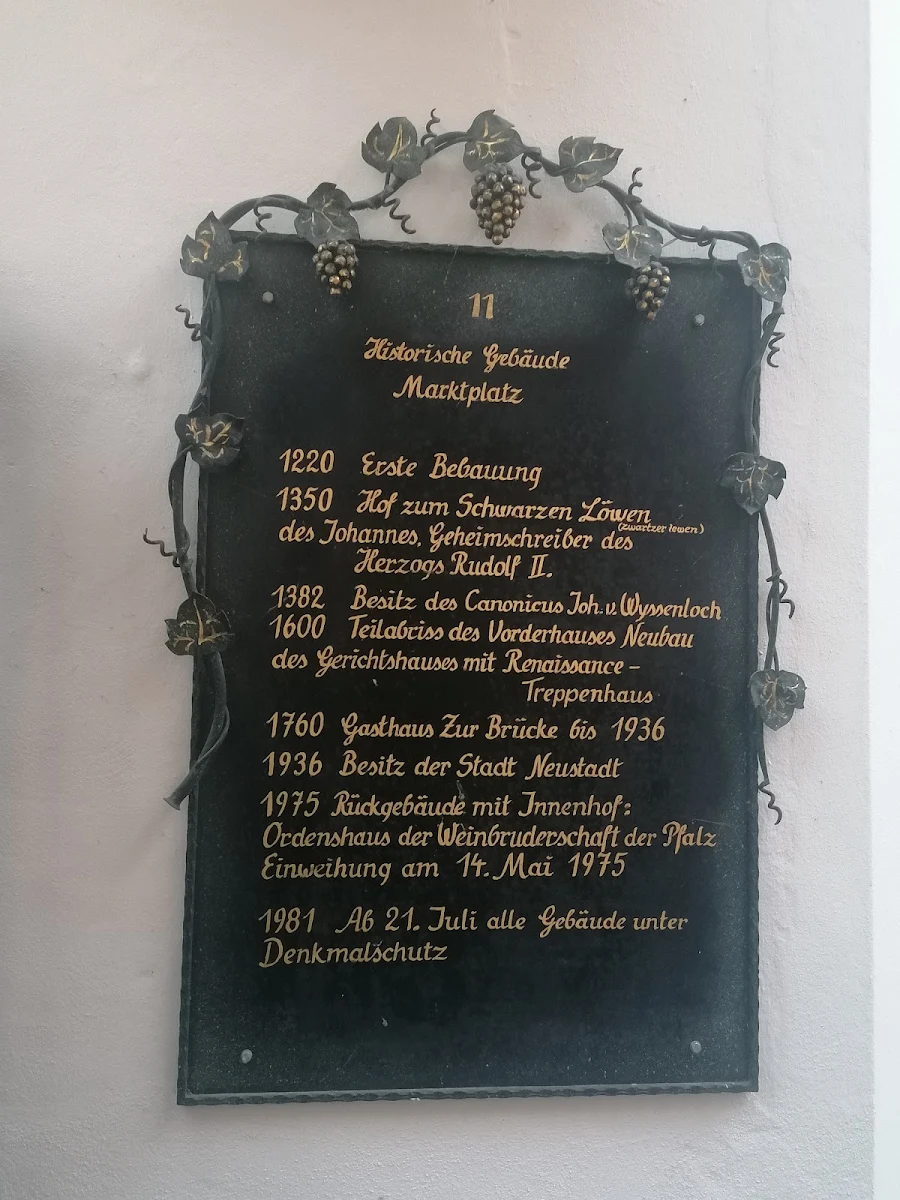 11
Historische Gebäude
Marktplatz
1220 Erste Bebauung
1350 Hof zum Schwarzen Löwen
(zwartzer lowen)
des Johannes, Geheimschreiber des
Herzogs Rudolf II.
1382 Besitz des Canonicus Joh. v. Wyssenloch
1600 Teilabriss des Vorderhauses Neubau
des Gerichtshauses mit Renaissance-
Treppenhaus
1760 Gasthaus Zur Brücke bis 1936
1936 Besitz der Stadt Neustadt
1975 Rückgebäude mit Innenhof:
Ordenshaus der Weinbruderschaft der Pfalz
Einweihung am 14. Mai 1975
1981 Ab 21. Juli alle Gebäude unter
Denkmalschutz